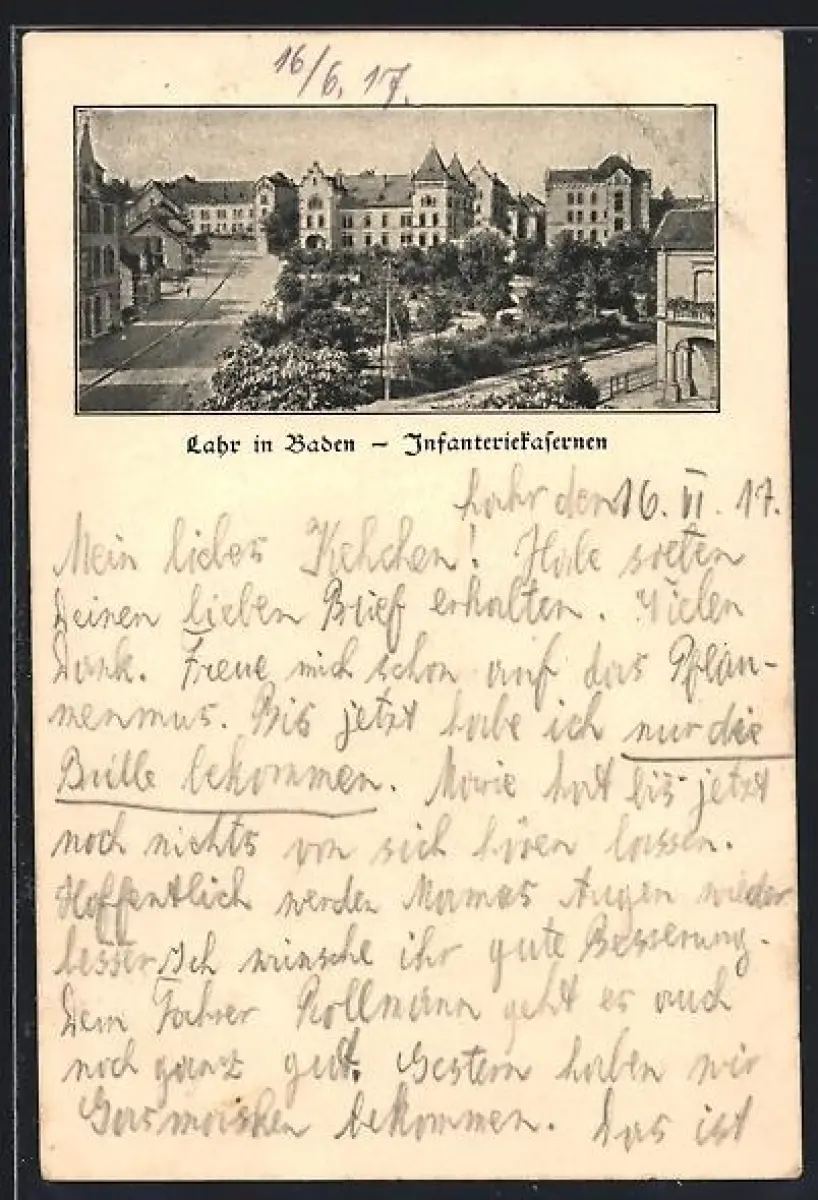 16/6. 17.
Lahr in Baden – Infanteriekasernen
Lahr den 16. VI. 17.
Mein liebes ! Habe soeten
Deinen lieben Brief erhalten. Vielen
Dank. Freue mich schon auf das Pflau-
menmus. Bis jetzt habe ich nur die
Brille bekommen. hat bis jetzt
noch nichts von sich hören lassen.
Hoffentlich werden Mamas Augen wieder
besser. Ich wünsche ihr gute Besserung.
Dem Fahrer Rollmann geht es auch
noch ganz gut. Gestern haben wir
Gasmasken bekommen. Das ist